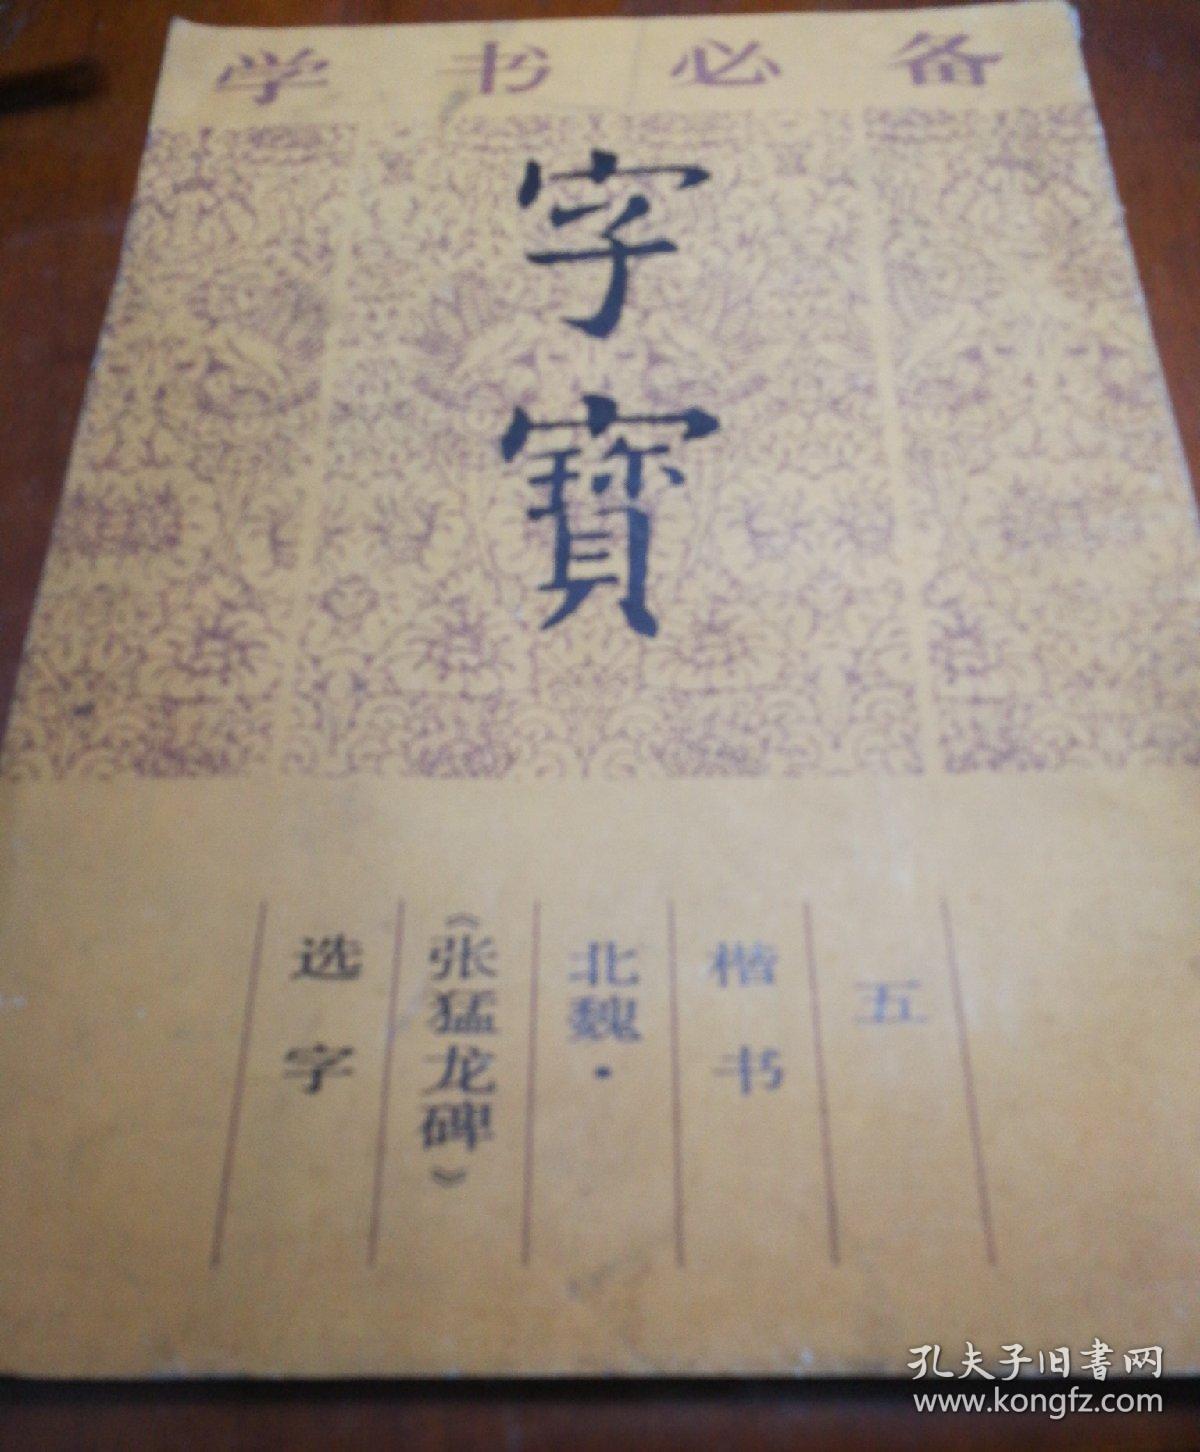 学书必备
字寶
五
楷书
北魏·
《张猛龙碑》
选字
孔夫子旧書网
www.kongfz.com